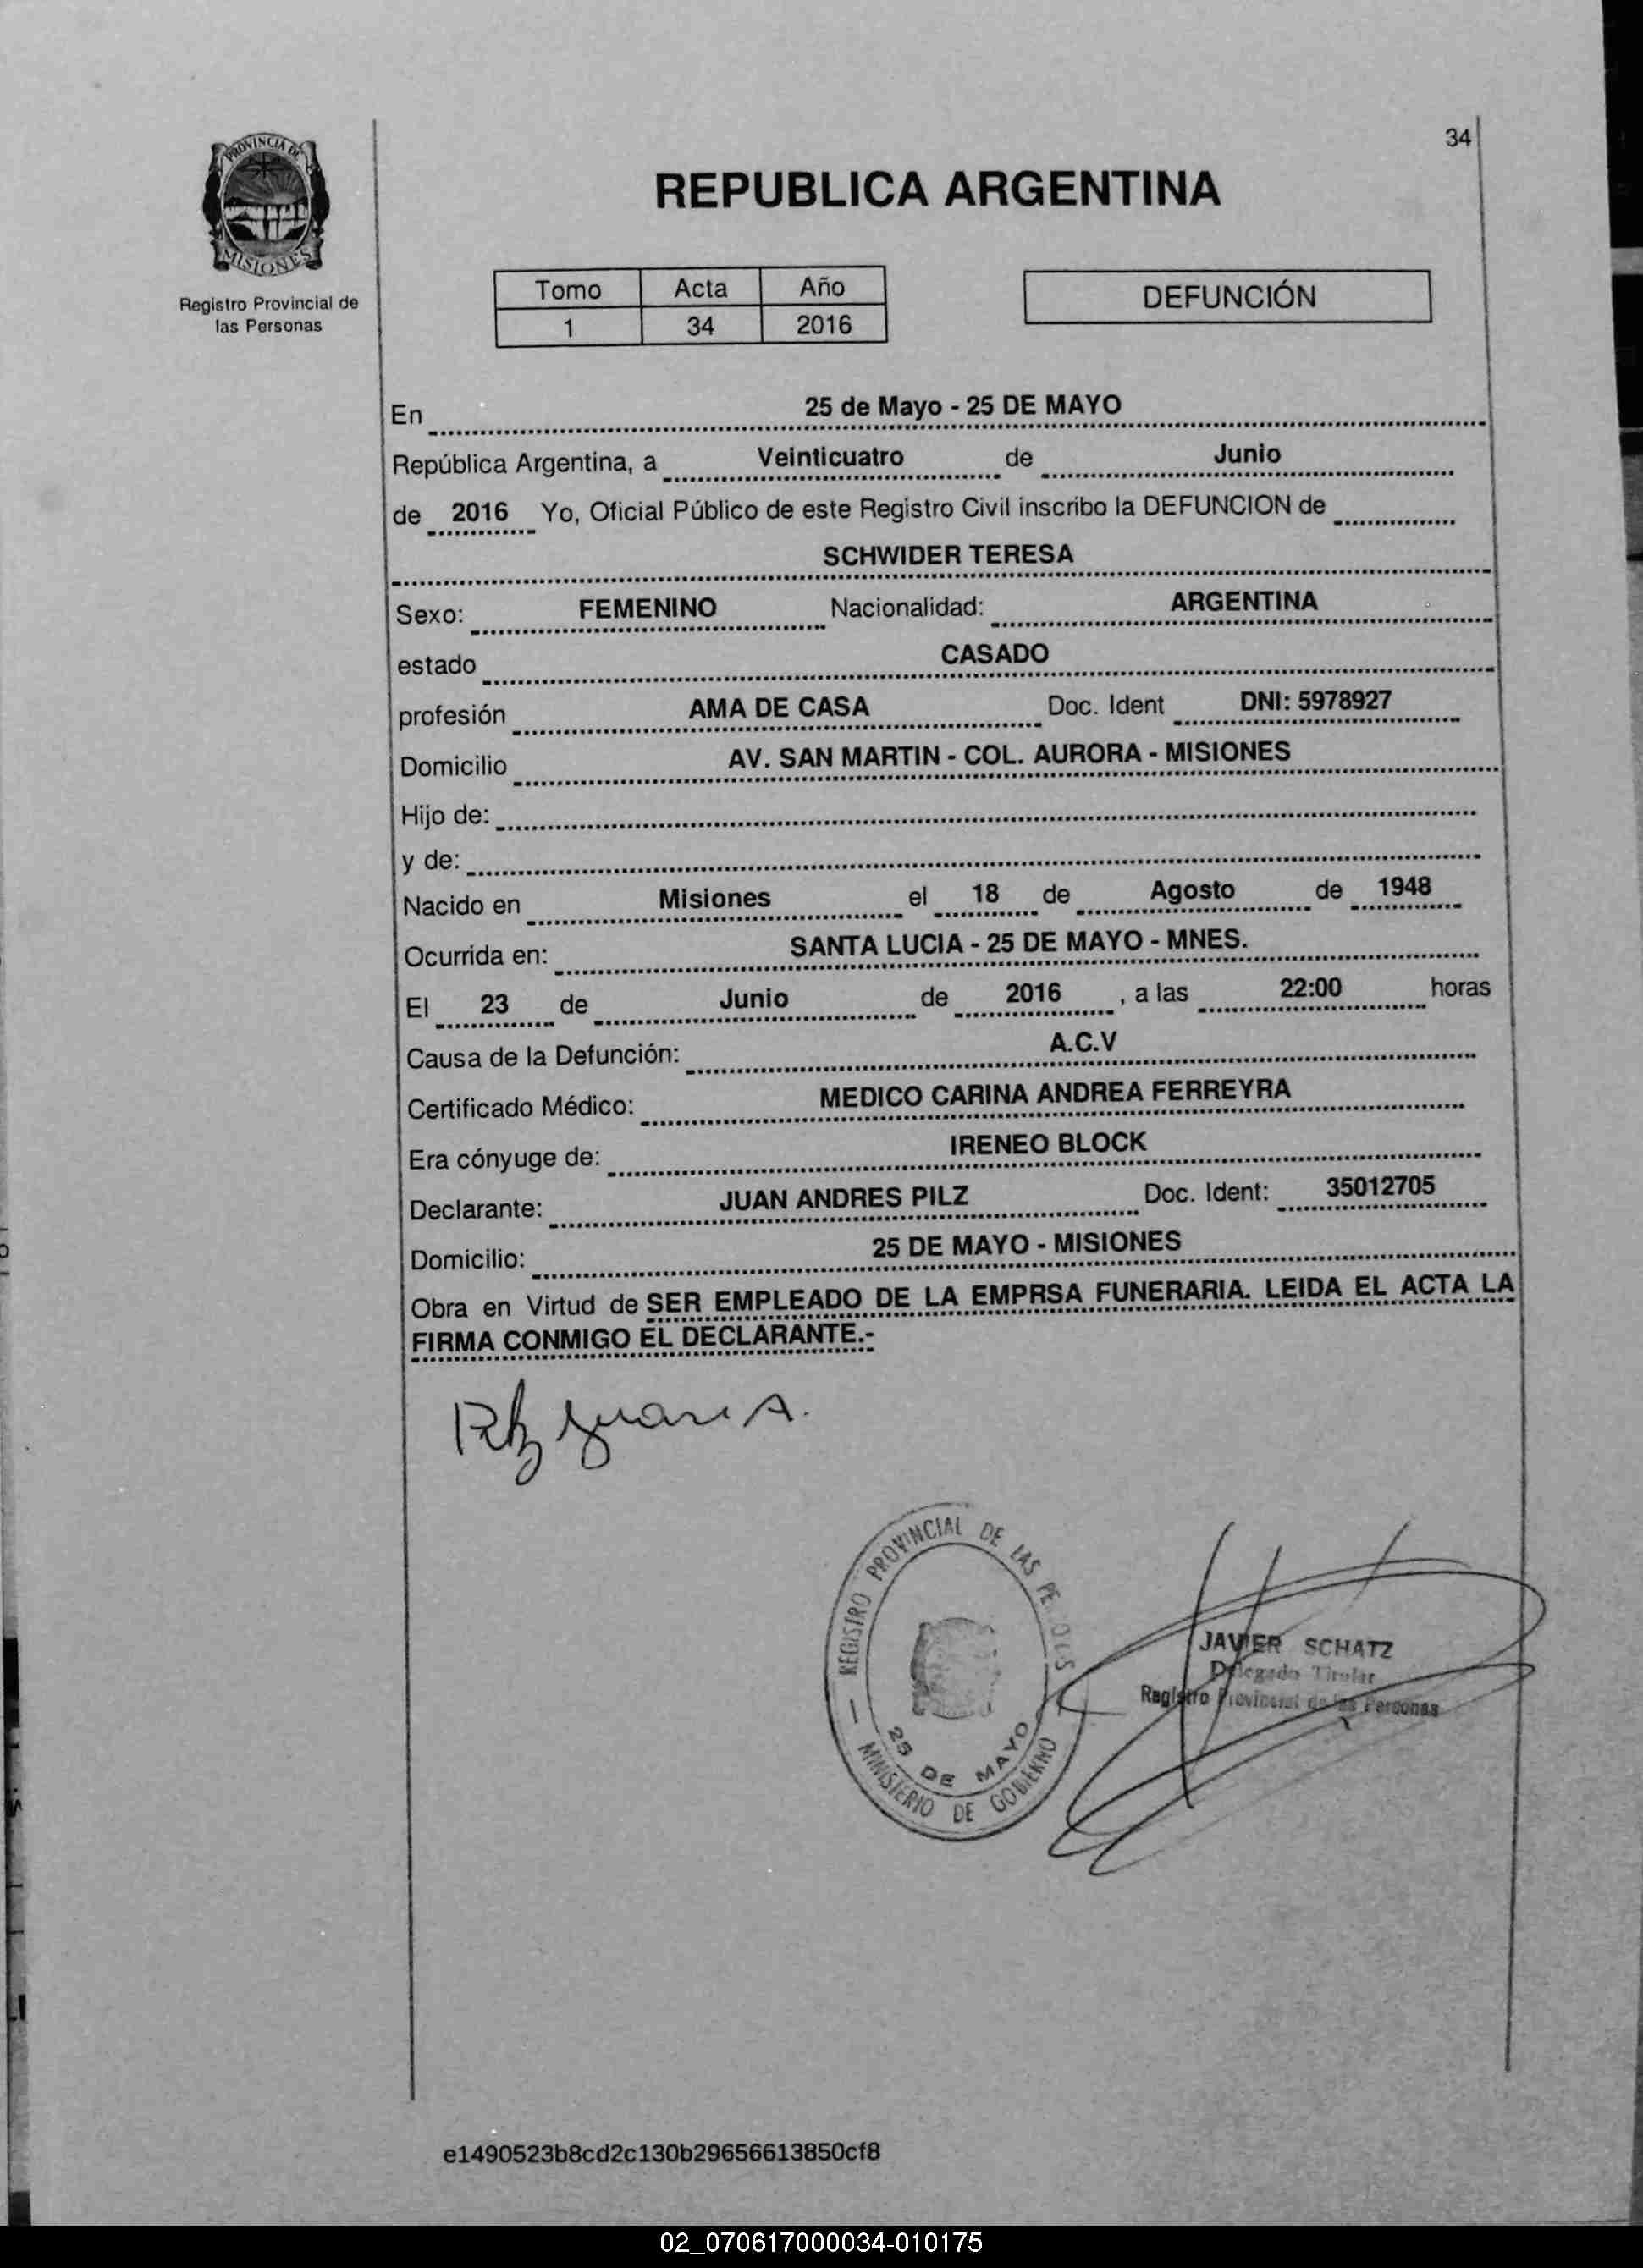 34
PROVINCIA DE
MISIONES
Registro Provincial de
las Personas
REPUBLICA ARGENTINA
Tomo Acta Año
1 34 2016
DEFUNCIÓN
En 25 de Mayo - 25 DE MAYO
República Argentina, a Veinticuatro de Junio
de 2016 Yo, Oficial Público de este Registro Civil inscribo la DEFUNCION de
SCHWIDER TERESA
Sexo: FEMENINO Nacionalidad: ARGENTINA
estado CASADO
profesión AMA DE CASA Doc. Ident DNI: 5978927
Domicilio AV. SAN MARTIN - COL. AURORA - MISIONES
Hijo de:
y de:
Nacido en Misiones el 18 de Agosto de 1948
Ocurrida en: SANTA LUCIA - 25 DE MAYO - MNES.
El 23 de Junio de 2016 , a las 22:00 horas
Causa de la Defunción: A.C.V
Certificado Médico: MEDICO CARINA ANDREA FERREYRA
Era cónyuge de: IRENEO BLOCK
Declarante: JUAN ANDRES PILZ Doc. Ident: 35012705
Domicilio: 25 DE MAYO - MISIONES
Obra en Virtud de SER EMPLEADO DE LA EMPRSA FUNERARIA. LEIDA EL ACTA LA
FIRMA CONMIGO EL DECLARANTE.-
Pilz Juan A.
REGISTRO PROVINCIAL DE LAS
25 DE MAYO
MINISTERIO DE GOBIERNO
JAVIER SCHATZ
Delegado Titular
Registro Provincial de las Personas
e1490523b8cd2c130b29656613850cf8
02_070617000034-010175